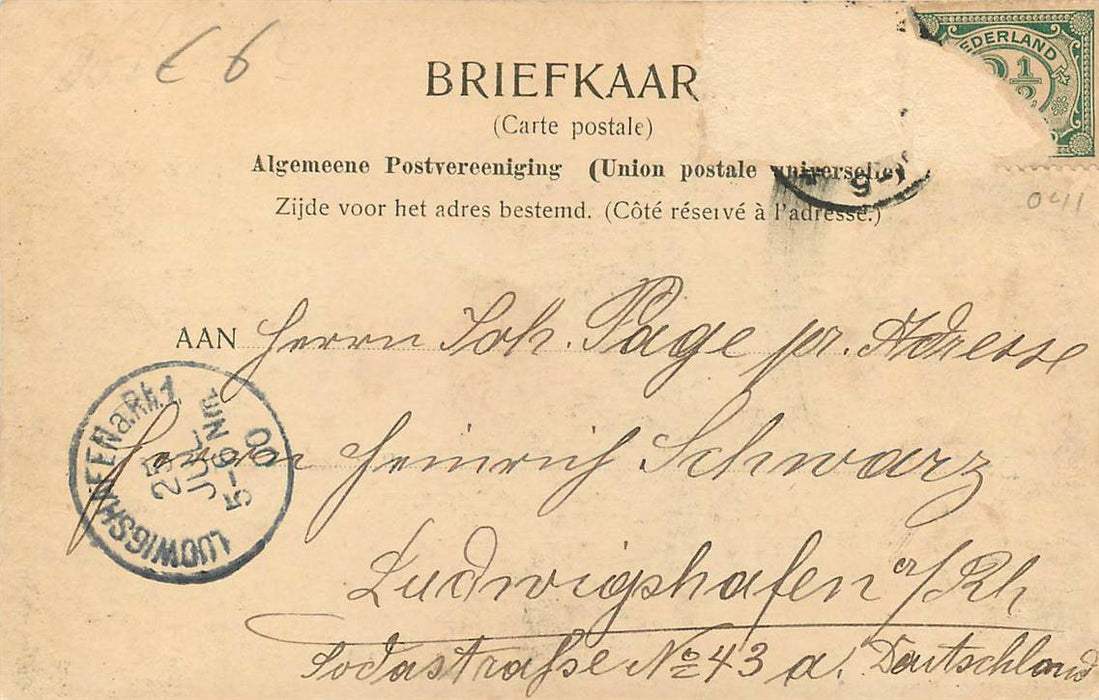 € 6
BRIEFKAAR
(Carte postale)
Algemeene Postvereeniging (Union postale universelle)
Zijde voor het adres bestemd. (Côté réservé à l'adresse.)
NEDERLAND
2½
5-6
0411
AAN Herrn Joh. Page pr. Adresse
Herrn Heinrich Schwarz
Ludwigshafen a/Rh
Sodastraße No 43 a. Deutschland
LUDWIGSHAFEN a.Rh.1
25
JUL
5-6N
00